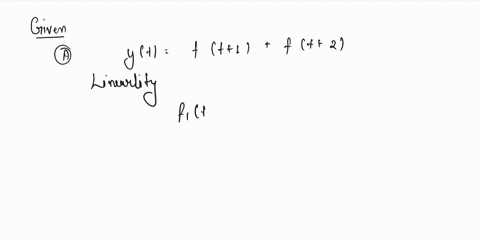 Given
(A) y(t) = f(t+1) + f(t+2)
Linearlity
f₁(t